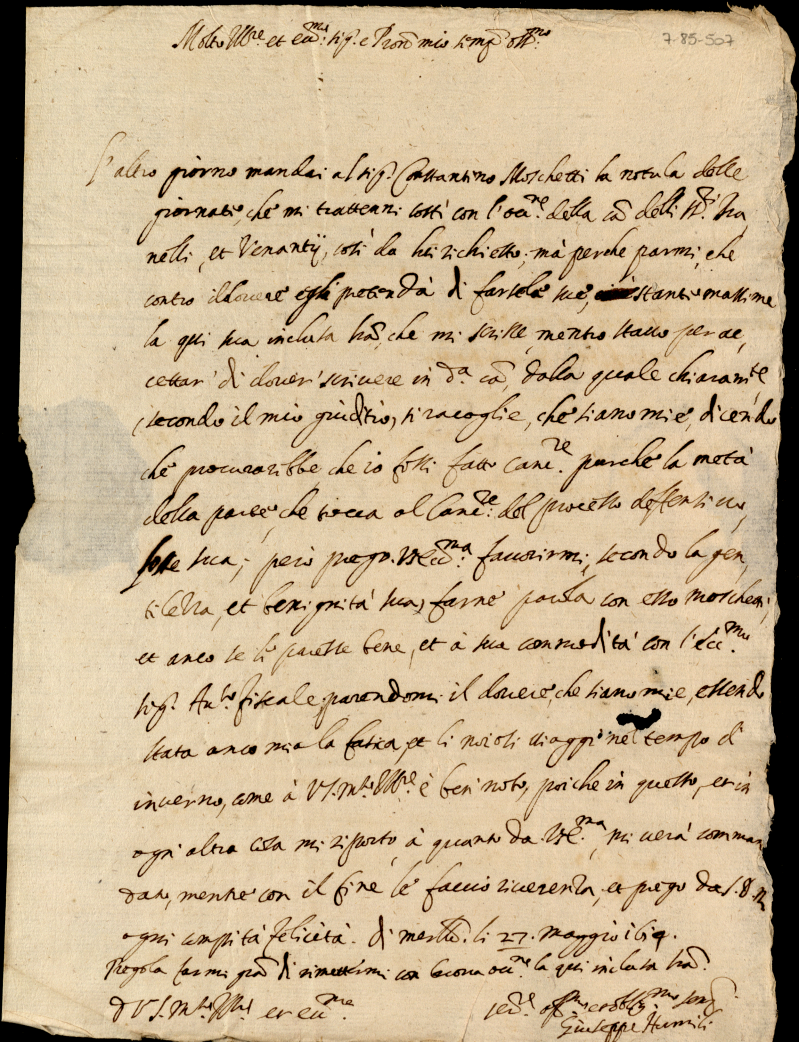 Molto Ill.re et ecc.mo sig.r e Pron mio semp.r oss.mo
7-85-507
L'altro giorno mandai al sig.r Costantino Moschetti la notula delle
giornate, che mi trattenni costì con l'occ.ne della cã delli ss.ri
nelli, et Venantij, così da lui richiesto; mà perche parmi, che
contro il dovere egli pretendà di farsele sue, stante massime
la qui sua inclusa lrã, che mi scrisse, mentre stavo per ac,
cettar' di dover' scrivere in d.a cã, dalla quale chiaram.te
(secondo il mio giuditio) si racoglie, che siano mie, dicendo
che procurarebbe che io fossi fatto Canc.re purche la metà
della parte, che tocca al Canc.re del processo deffensivo,
fosse sua; però prego V.S.Ecc.ma favorirmi, secondo la gen,
tilezza, et benignità sua, farne parola con esso Moschetti,
et anco se li paresse bene, et à sua commodità con l'ecc.mo
sig.r Au.re fiscale, parendomi il dovere, che siano mie, essendo
stata anco mia la fatica, et li noiosi viaggi nel tempo di
inverno, come à V.S. m.to Ill.re è ben noto, poiche in questo, et in
ogni altra cosa mi riporto à quanto da V.S.E.ma mi verà comman
dato, mentre con il fine le faccio riverenza, et prego da S.D.M
ogni compita felicità. di li 27. maggio
Pregola farmi grã di rimettermi con buona occ.ne la qui inclusa lrã.
D V.S. m.to Ill.re et ecc.ma
ser.re aff.mo et obblig.mo
Giuseppe Humili